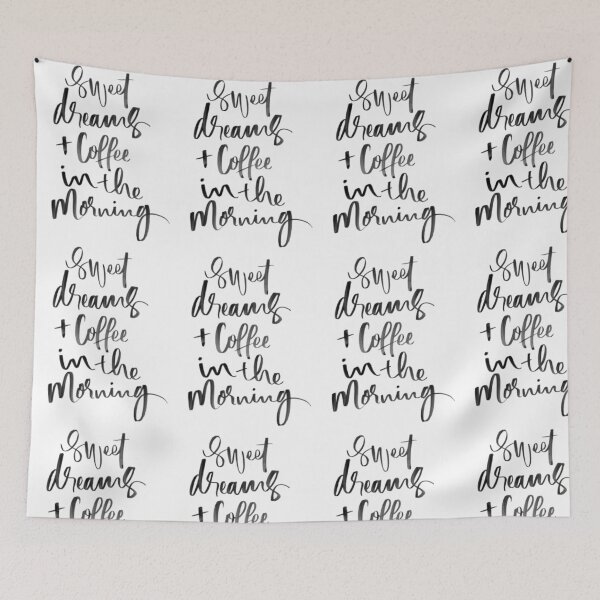 Sweet
dreams
+ Coffee
in the
Morning
Sweet
dreams
+ Coffee
in the
Morning
Sweet
dreams
+ Coffee
in the
Morning
Sweet
dreams
+ Coffee
in the
Morning
Sweet
dreams
+ Coffee
in the
Morning
Sweet
dreams
+ Coffee
in the
Morning
Sweet
dreams
+ Coffee
in the
Morning
Sweet
dreams
+ Coffee
in the
Morning
Sweet
dreams
+ Coffee
Sweet
dreams
+ Coffee
Sweet
dreams
+ Coffee
Sweet
dreams
+ Coffee